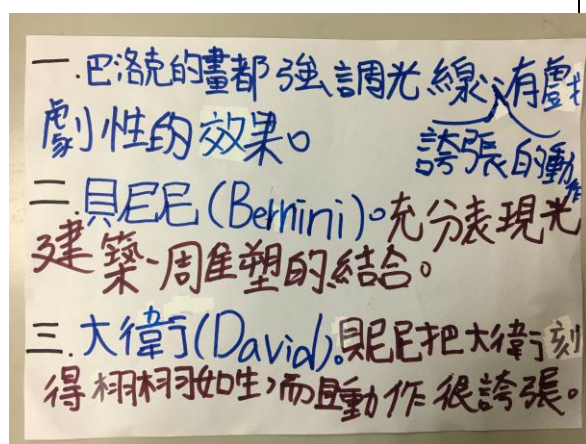 一.巴洛克的畫都強調光線,有戲
劇性的效果。
誇張的動作
二.貝尼尼(Bernini)。充分表現光
建築、周隹塑的結合。
三.大衛(David)。貝尼尼把大衛刻
得栩栩如生,而且動作很誇張。